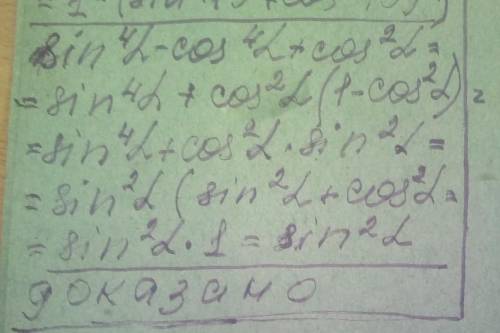 sin⁴α-cos⁴α+cos²α=
=sin⁴α+cos²α(1-cos²α)=
=sin⁴α+cos²α·sin²α=
=sin²α(sin²α+cos²α=
=sin²α·1=sin²α
доказано